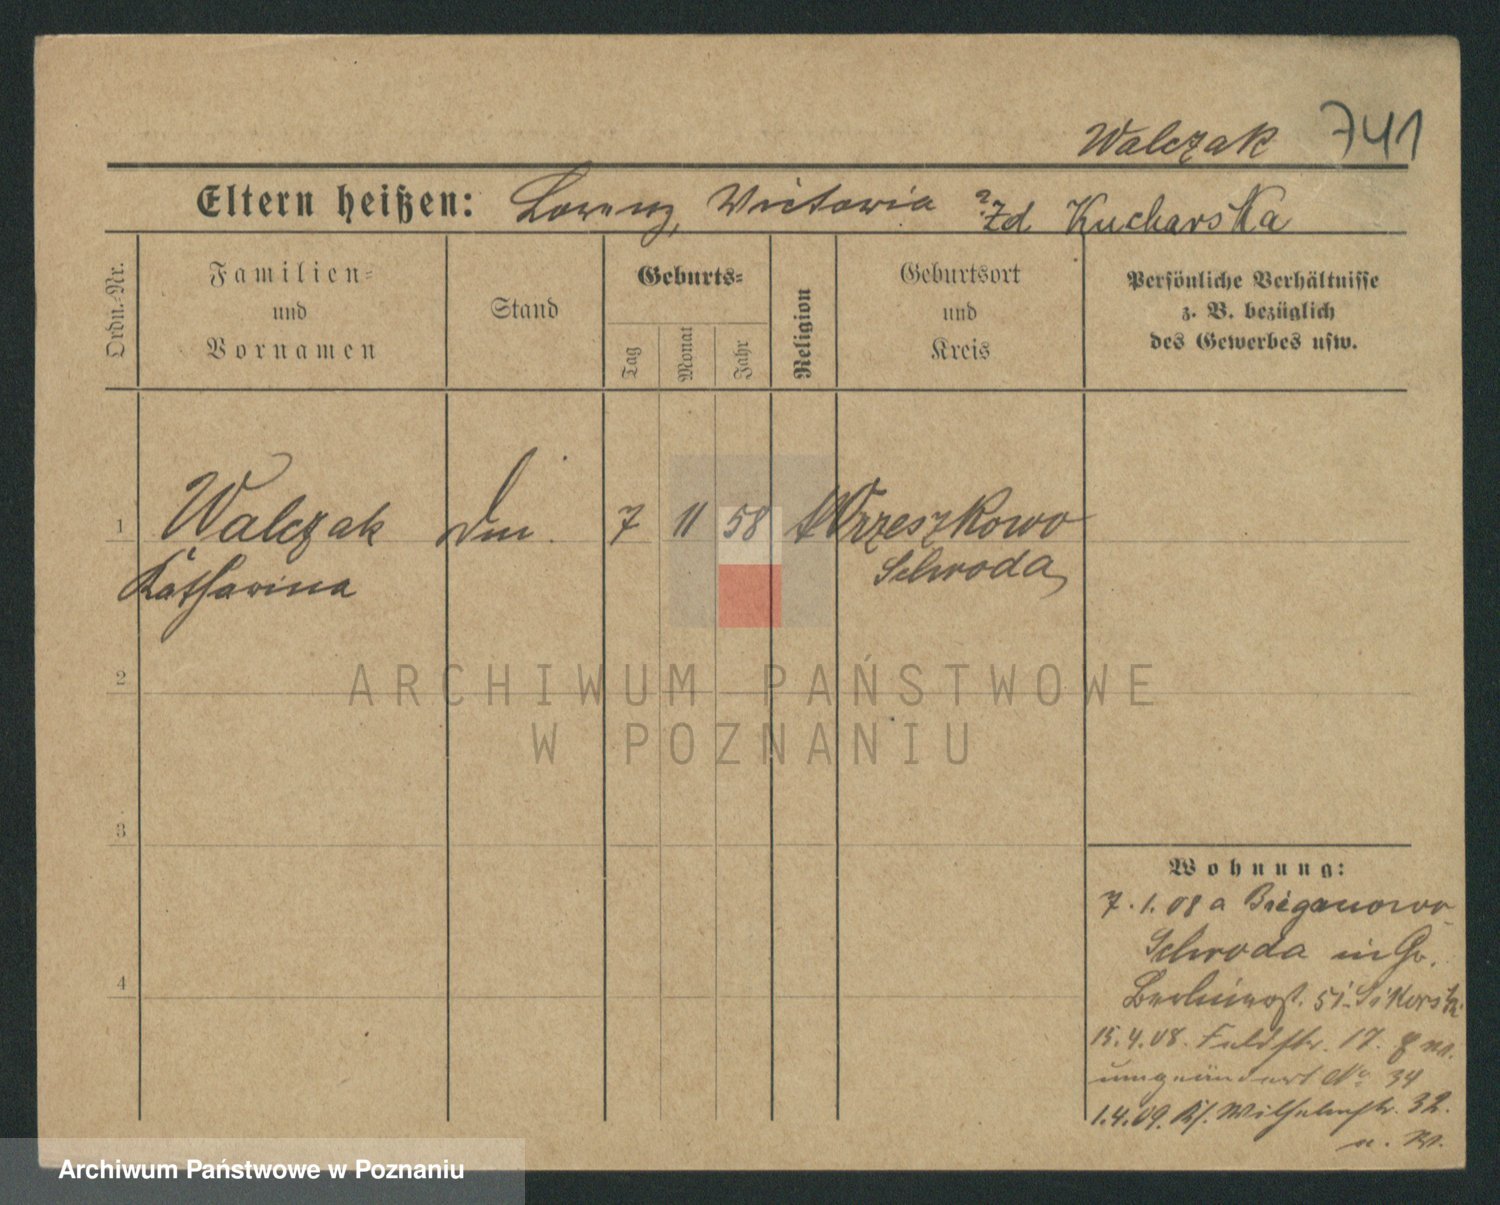 Walczak 741
Eltern heißen: Lorenz, Victoria Kucharska
Ordn.-Nr.
Familien-
und
Vornamen
Stand
Geburts-
Tag
Monat
Jahr
Religion
Geburtsort
und
Kreis
Persönliche Verhältnisse
z. B. bezüglich
des Gewerbes usw.
1 Walczak 7 11 58 Wrzeszkowo
Katharina Schroda
2
ARCHIWUM PAŃSTWOWE
W POZNANIU
3
4
Wohnung:
7.1.08 a Bieganowo
Schroda in
51 Sikorski
15.4.08. Feldstr. 17.
umgeändert No 34
1.4.09. Wilhelmstr. 32.
Archiwum Państwowe w Poznaniu